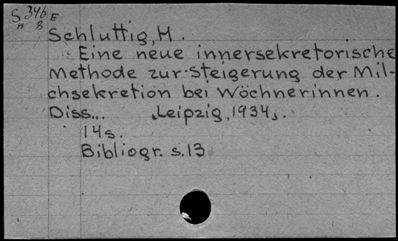 S 346 E
n 8
Schluttig, M.
Eine neue innersekretorische
Methode zur Steigerung der Mil-
chsekretion bei Wöchnerinnen.
Diss... „Leipzig, 1934„.
14s.
Bibliogr. s.13